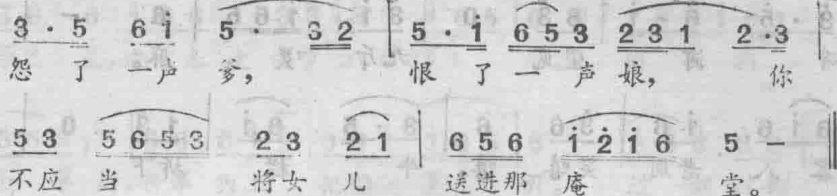 3 · 5 6 i 5 · 3 2 | 5 · i 6 5 3 2 3 1 2 · 3 |
怨 了 一声 爹, 恨 了 一 声 娘, 你
5 3 5 6 5 3 2 3 2 1 | 6 5 6 i 2 i 6 5 — ‖
不应 当 将女 儿 送进那 庵 堂。